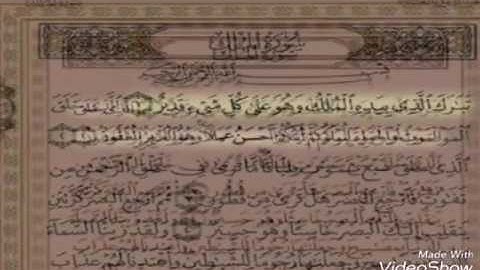 سُورَةُ المُلْكِ
تَبَٰرَكَ ٱلَّذِى بِيَدِهِ ٱلْمُلْكُ وَهُوَ عَلَىٰ كُلِّ شَىْءٍ قَدِيرٌ ١ ٱلَّذِى خَلَقَ
ٱلْمَوْتَ وَٱلْحَيَوٰةَ لِيَبْلُوَكُمْ أَيُّكُمْ أَحْسَنُ عَمَلًا وَهُوَ ٱلْعَزِيزُ ٱلْغَفُورُ ٢
ٱلَّذِى خَلَقَ سَبْعَ سَمَٰوَٰتٍ طِبَاقًا مَّا تَرَىٰ فِى خَلْقِ ٱلرَّحْمَٰنِ مِن
تَفَٰوُتٍ فَٱرْجِعِ ٱلْبَصَرَ هَلْ تَرَىٰ مِن فُطُورٍ ٣ ثُمَّ ٱرْجِعِ ٱلْبَصَرَ كَرَّتَيْنِ
يَنقَلِبْ إِلَيْكَ ٱلْبَصَرُ خَاسِئًا وَهُوَ حَسِيرٌ ٤ وَلَقَدْ زَيَّنَّا ٱلسَّمَآءَ
Made With
VideoShow